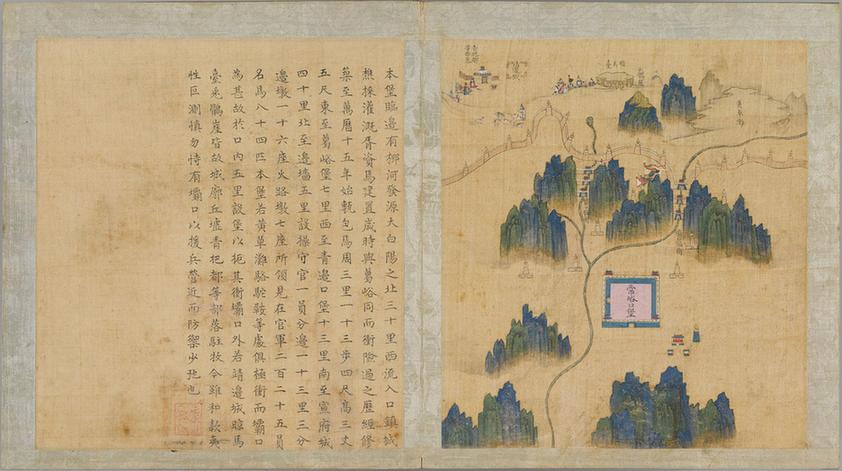 本堡臨邊有柳河發源大白陽之北三十里西流入口鎮城
樵採灌溉胥資焉建置歲時與葛峪同而衝險過之歷經修
築至萬曆十五年始甎包焉周三里一十三步四尺高三丈
五尺東至葛峪堡七里西至青邊口堡十三里南至宣府城
四十里北至邊墻五里設操守官一員分邊一十三里三分
邊墩一十六座火路墩七座所領見在官軍二百二十五員
名馬八十四匹本堡若黃草灘駱駝鞍等處俱極衝而壩口
為甚故於口內五里設堡以扼其衝壩口外若靖邊城晾馬
臺兎鶻崖皆故城廓丘墟青把都等部落駐牧今雖和款夷
性叵測慎勿恃有壩口以援兵營近而防禦少弛也
常峪口堡